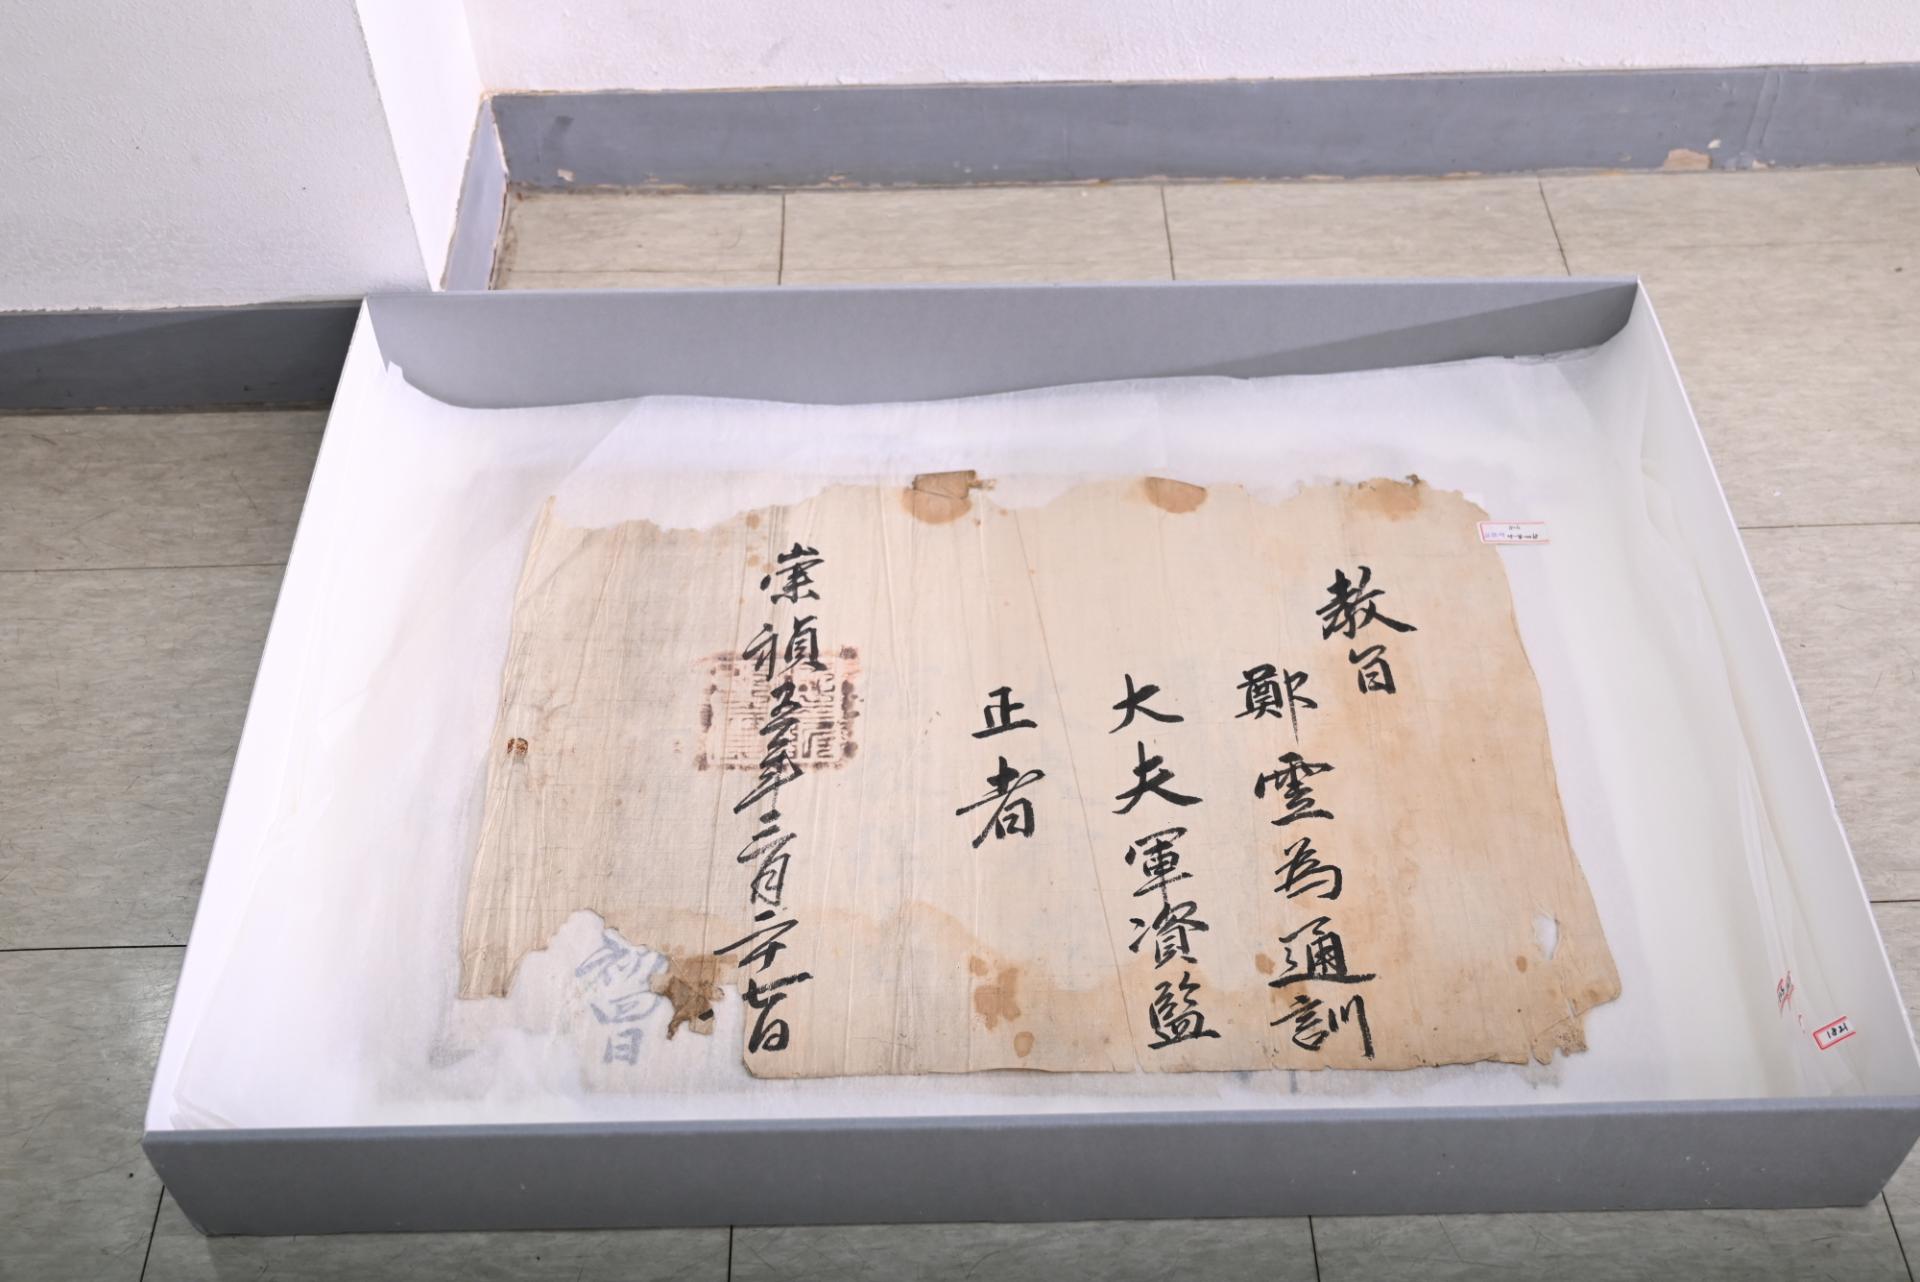 教旨
鄭雲為通訓
大夫軍資監
正者
崇禎五年三月二十七日
1821